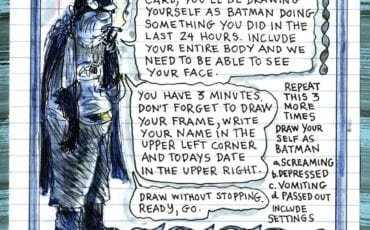 CARD, YOU'LL BE DRAWING
YOURSELF AS BATMAN DOING
SOMETHING YOU DID IN THE
LAST 24 HOURS. INCLUDE
YOUR ENTIRE BODY AND WE
NEED TO BE ABLE TO SEE
YOUR FACE.
YOU HAVE 3 MINUTES,
DON'T FORGET TO DRAW
YOUR FRAME, WRITE
YOUR NAME IN THE
UPPER LEFT CORNER
AND TODAYS DATE
IN THE UPPER RIGHT.
DRAW WITHOUT STOPPING.
READY, GO.
REPEAT
THIS 3
MORE
TIMES
DRAW YOUR
SELF AS
BATMAN
a. SCREAMING
b. DEPRESSED
c. VOMITING
d. PASSED OUT
INCLUDE
SETTINGS